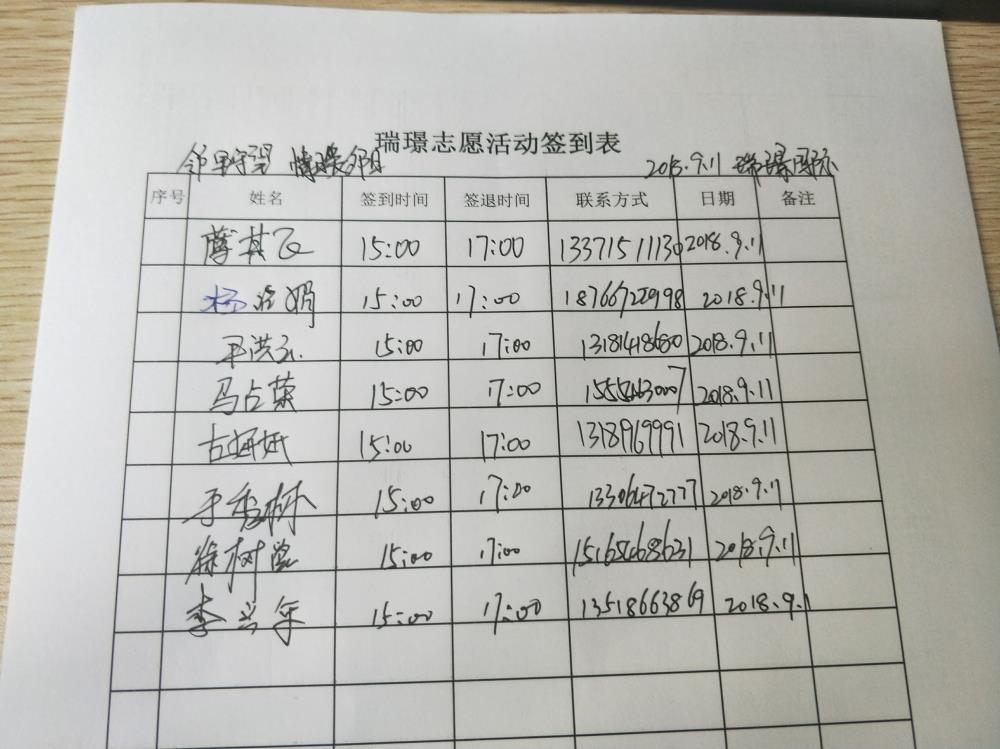 瑞璟志愿活动签到表
邻里守望 情暖 2018.9.11 瑞璟国际
序号 姓名 签到时间 签退时间 联系方式 日期 备注
其飞 15:00 17:00 13371511130 2018.9.11
杨 娟 15:00 17:00 18766722998 2018.9.11
洪 15:00 17:00 13181418680 2018.9.11
马占荣 15:00 17:00 15554463007 2018.9.11
古妍妍 15:00 17:00 13189169991 2018.9.11
于秀林 15:00 17:00 13306472777 2018.9.11
徐树 15:00 17:00 15165468631 2018.9.11
李兴年 15:00 17:00 13518663869 2018.9.11